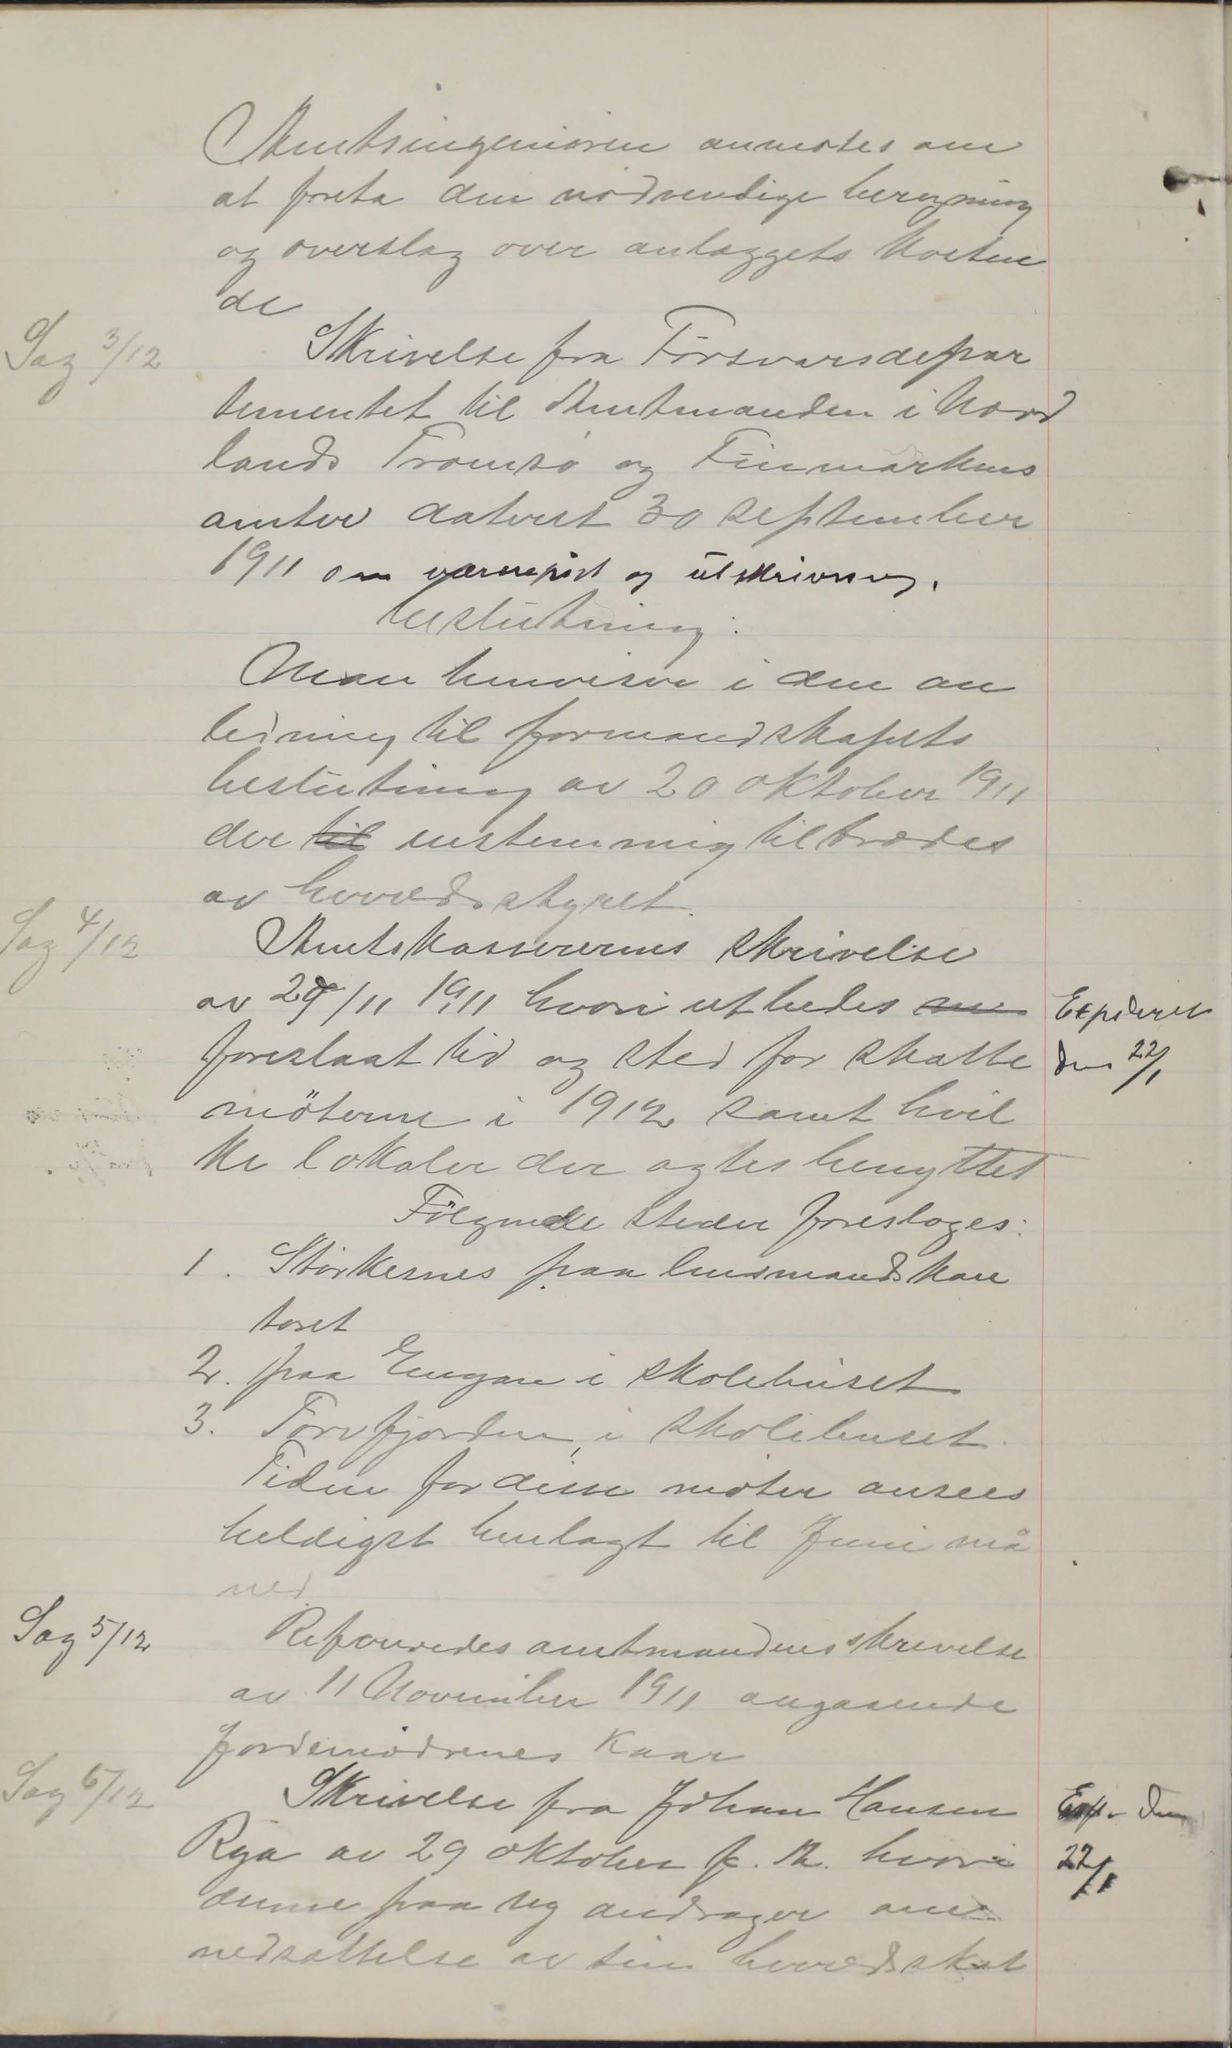 Amtsingeniøren anmotes om
at foreta den nødvendige beregning
og overslag over anlæggets kosten
de
Sag 3/12
Skrivelse fra Forsvarsdepar
tementet til Amtmanden i Nord
lands Tromsø og Finmarkens
amter datert 30 september
1911 om værnepligt og utskrivning.
beslutning:
Man henviser i den an
ledning til formandskapets
beslutning av 20 oktober 1911
der til enstemmig tiltrædes
av herredsstyret.
Sag 4/12
Amtskassererens skrivelse
av 29/11 1911 hvori utbedes
Expideret
foreslaat tid og sted for skatte
den 22/1
møterne i 1912 samt hvil
ke lokaler der agtes benyttet
Følgende steder foreslages:
1. Storkernes paa lensmandskon
toret
2. paa Engan i skolehuset
3. Torefjorden, i skolehuset.
Tiden for disse møter ansees
heldigst henlagt til Juni må
ned
Sag 5/12
Refereredes amtmandens skrivelse
av 11 November 1911 angaaende
jordemødrenes kaar
Sag 6/12
Skrivelse fra Johan Hansen
Exp. den
Rya av 29 oktober f. A. hvori
22/1
denne paa ny andrager om
nedsættelse av sin herredsskat